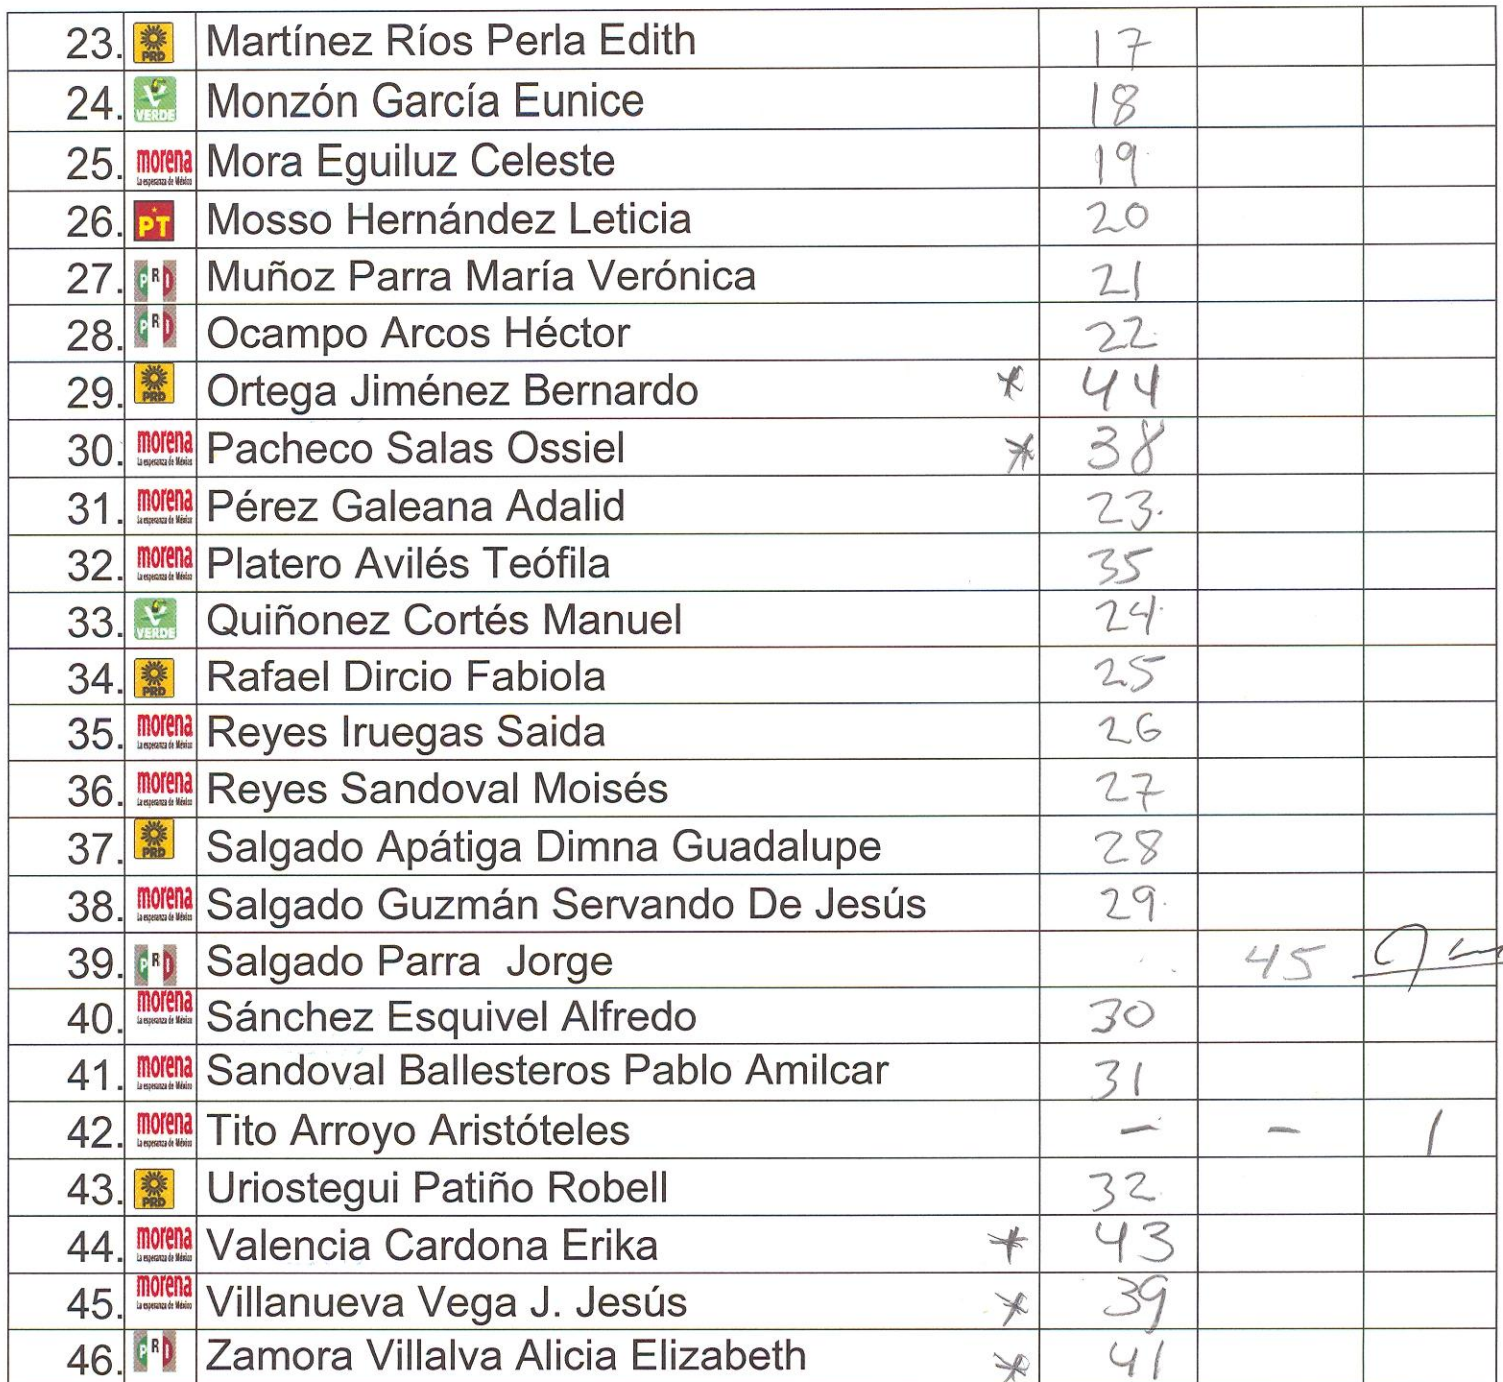 23. PRD Martínez Ríos Perla Edith 17
24. VERDE Monzón García Eunice 18
25. morena La esperanza de México Mora Eguiluz Celeste 19
26. PT Mosso Hernández Leticia 20
27. PRI Muñoz Parra María Verónica 21
28. PRI Ocampo Arcos Héctor 22
29. PRD Ortega Jiménez Bernardo * 44
30. morena La esperanza de México Pacheco Salas Ossiel * 38
31. morena La esperanza de México Pérez Galeana Adalid 23
32. morena La esperanza de México Platero Avilés Teófila 35
33. VERDE Quiñonez Cortés Manuel 24
34. PRD Rafael Dircio Fabiola 25
35. morena La esperanza de México Reyes Iruegas Saida 26
36. morena La esperanza de México Reyes Sandoval Moisés 27
37. PRD Salgado Apátiga Dimna Guadalupe 28
38. morena La esperanza de México Salgado Guzmán Servando De Jesús 29
39. PRI Salgado Parra Jorge 45
40. morena La esperanza de México Sánchez Esquivel Alfredo 30
41. morena La esperanza de México Sandoval Ballesteros Pablo Amilcar 31
42. morena La esperanza de México Tito Arroyo Aristóteles – – 1
43. PRD Uriostegui Patiño Robell 32
44. morena La esperanza de México Valencia Cardona Erika * 43
45. morena La esperanza de México Villanueva Vega J. Jesús * 39
46. PRI Zamora Villalva Alicia Elizabeth * 41